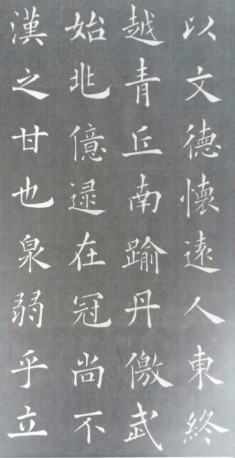 以文德懷遠人東終
越青丘南踰丹儌武
始兆億逮在冠尚不
漢之甘也泉弱乎立